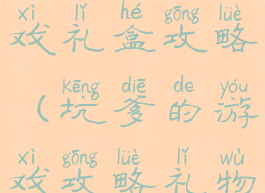 xì lǐ hé gōng lüè
戏礼盒攻略
kēng diē de yóu
(坑爹的游
xì gōng lüè lǐ wù
戏攻略礼物